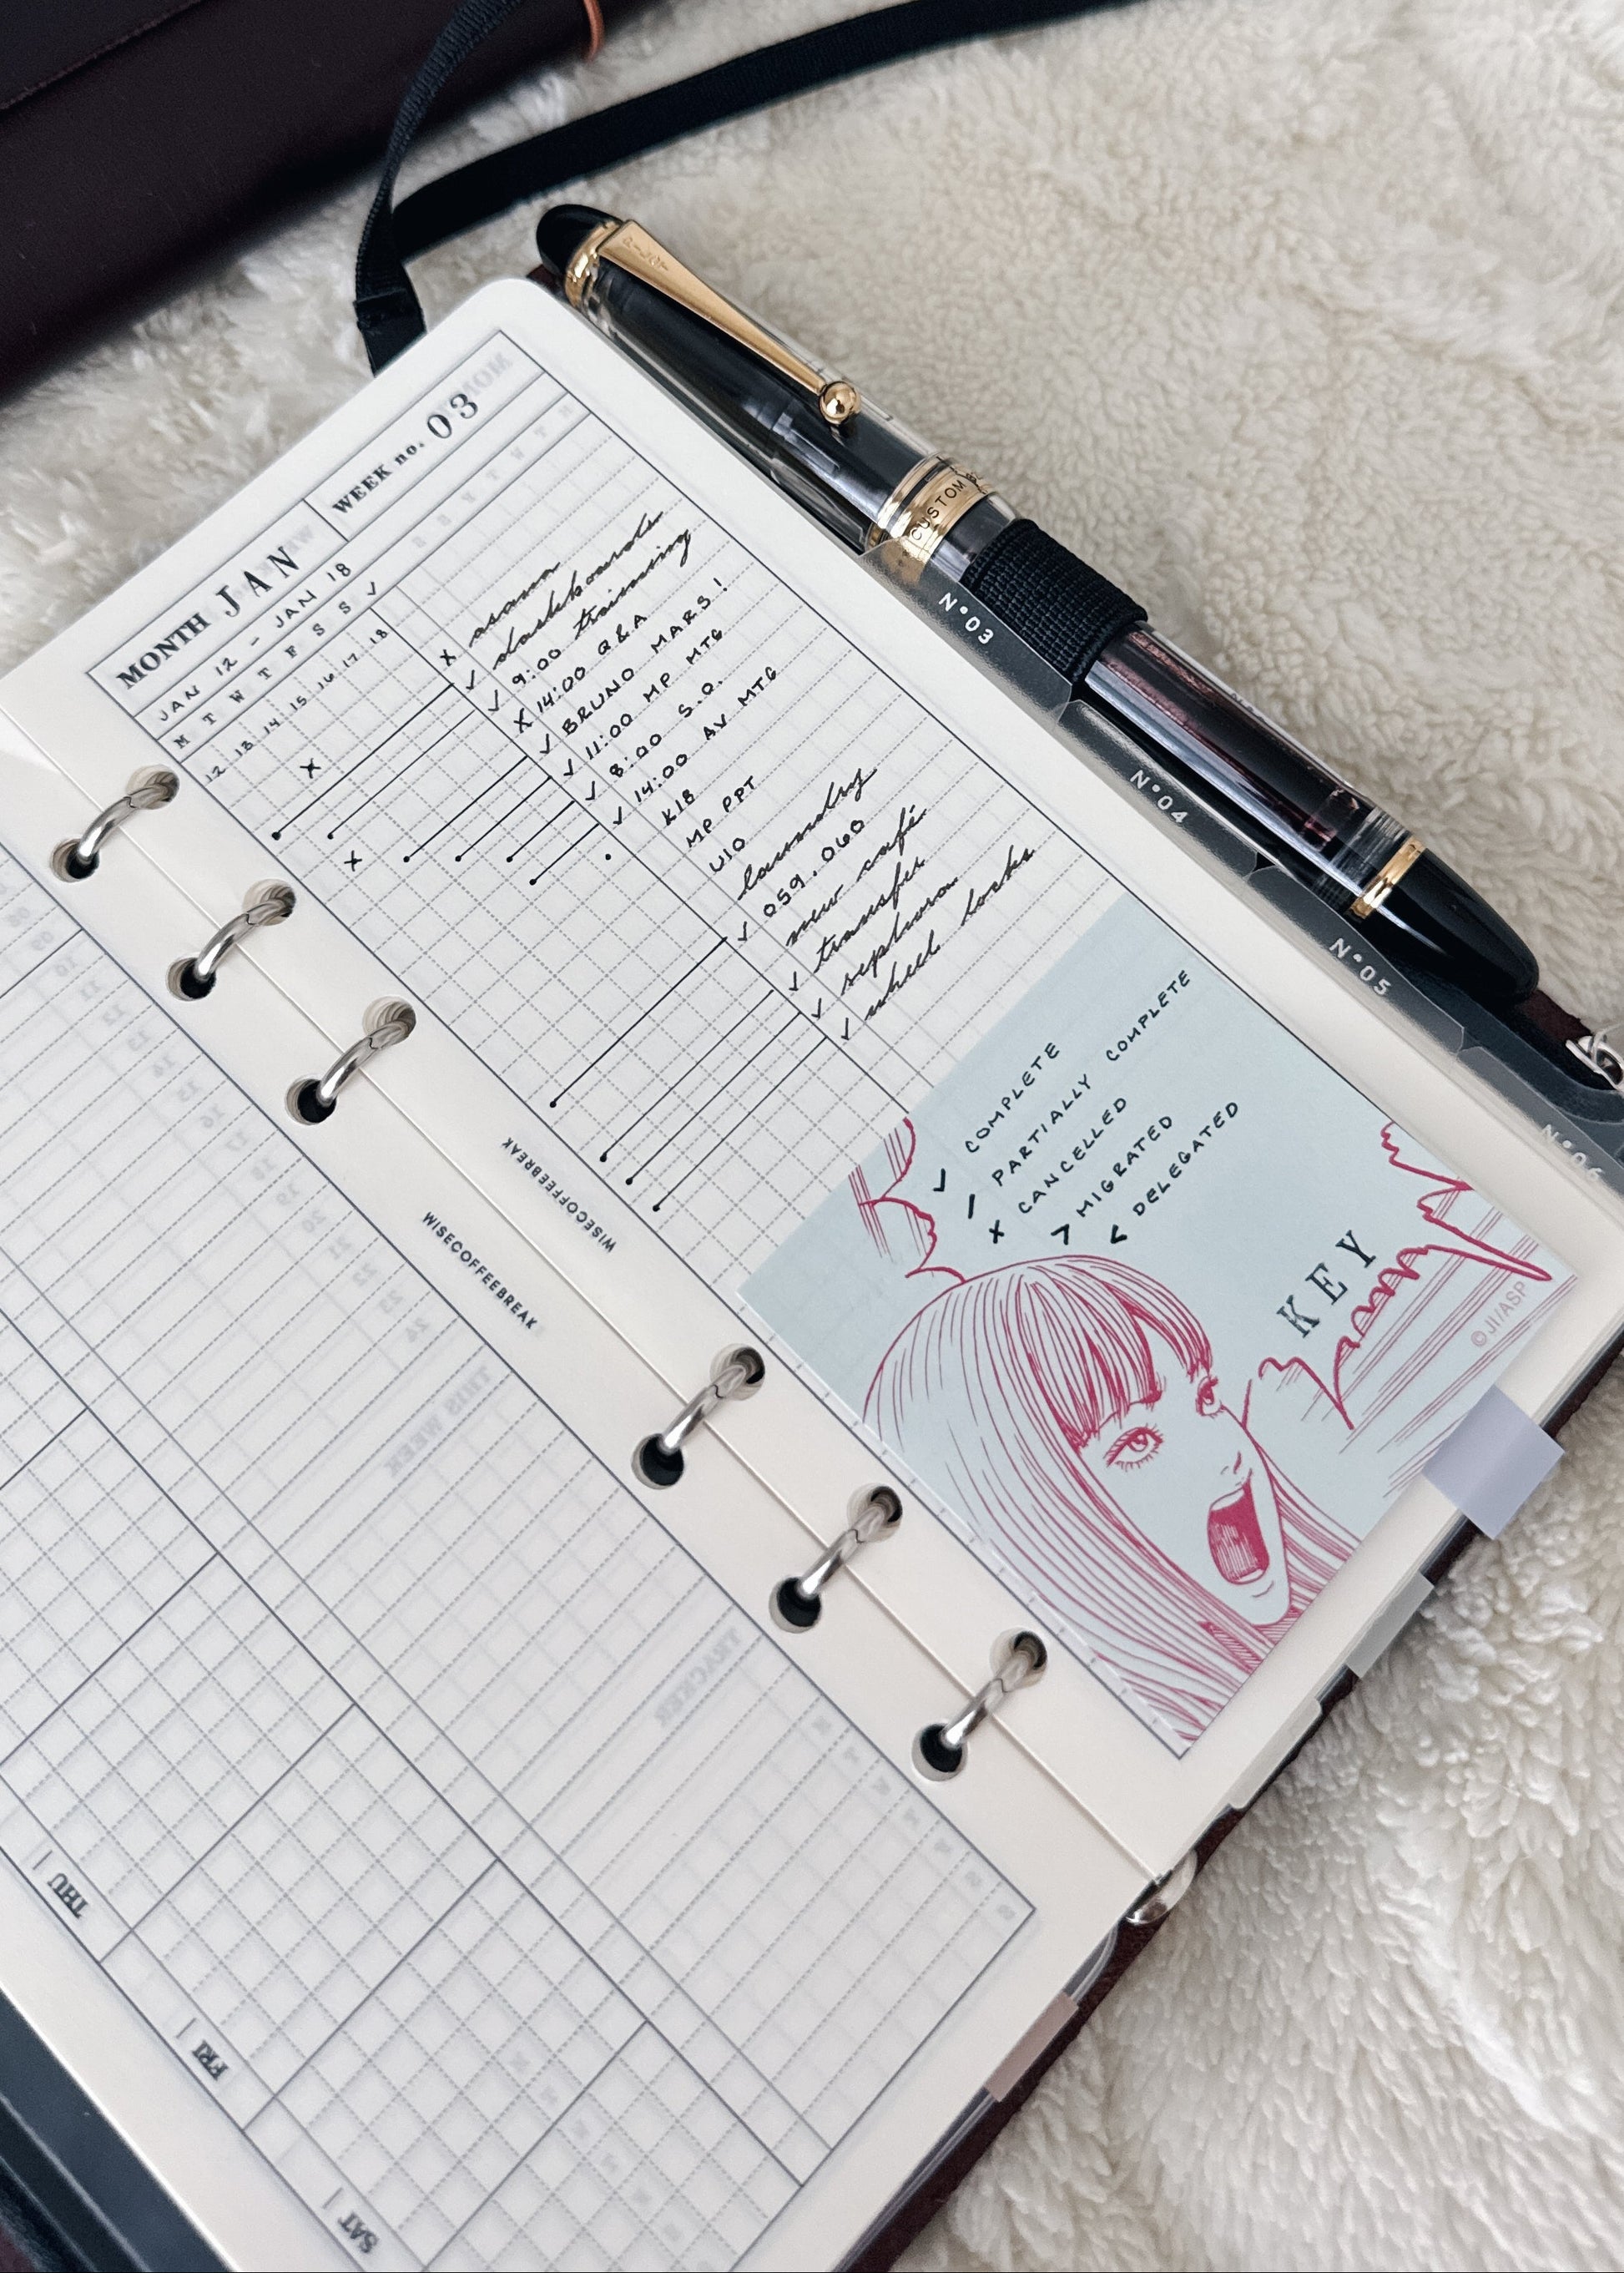 MONTH JAN WEEK no. 03
JAN 12 - JAN 18
M T W T F S S ✓
12 13 14 15 16 17 18
x asana
✓ dashboards
✓ 9:00 training
x 14:00 Q&A
✓ BRUNO MARS!
✓ 11:00 MP MTG
✓ 8:00 S.O.
✓ 14:00 AV MTG
K18
MP PPT
U10
laundry
✓ 059.060
new café
✓ transfer
✓ sephora
✓ wheel locks
✓ COMPLETE
/ PARTIALLY COMPLETE
x CANCELLED
> MIGRATED
< DELEGATED
KEY
©JI/ASP
WISECOFFEEBREAK
WISECOFFEEBREAK
THU |
FRI |
SAT |
N°03
N°04
N°05
N°06
CUSTOM